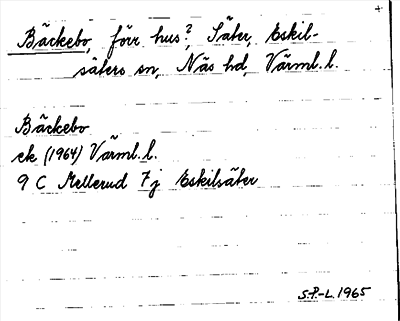 +
Bäckebo, förr hus?, Säter, Eskil-
säters sn, Näs hd, Värml. l.
Bäckebo
ek (1964) Värml. l.
9 C Mellerud 7j Eskilsäter
S.P.-L. 1965